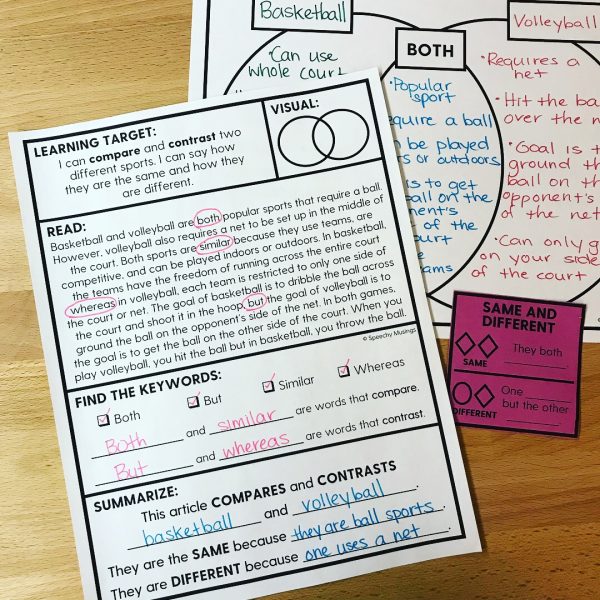 Basketball
BOTH
Volleyball
Can use
whole court
Popular
sport
a ball
be played
or outdoors
to get
ball on the
of the
Requires a
net
Hit the
over the
Goal is
ground the
ball on
opponent's
of the net
Can only
on your side
of the court
LEARNING TARGET:
I can compare and contrast two
different sports. I can say how
they are the same and how they
are different.
VISUAL:
READ:
Basketball and volleyball are both popular sports that require a ball.
However, volleyball also requires a net to be set up in the middle of
the court. Both sports are similar because they use teams, are
competitive, and can be played indoors or outdoors. In basketball,
the teams have the freedom of running across the entire court
whereas in volleyball, each team is restricted to only one side of
the court or net. The goal of basketball is to dribble the ball across
the court and shoot it in the hoop but the goal of volleyball is to
ground the ball on the opponent's side of the net. In both games,
the goal is to get the ball on the other side of the court. When you
play volleyball, you hit the ball but in basketball, you throw the ball.
© Speechy Musings
FIND THE KEYWORDS:
Both But Similar Whereas
Both and similar are words that compare.
But and whereas are words that contrast.
SUMMARIZE:
This article COMPARES and CONTRASTS
basketball and volleyball.
They are the SAME because they are ball sports.
They are DIFFERENT because one uses a net.
SAME AND
DIFFERENT
They both
SAME
One
but the other
DIFFERENT